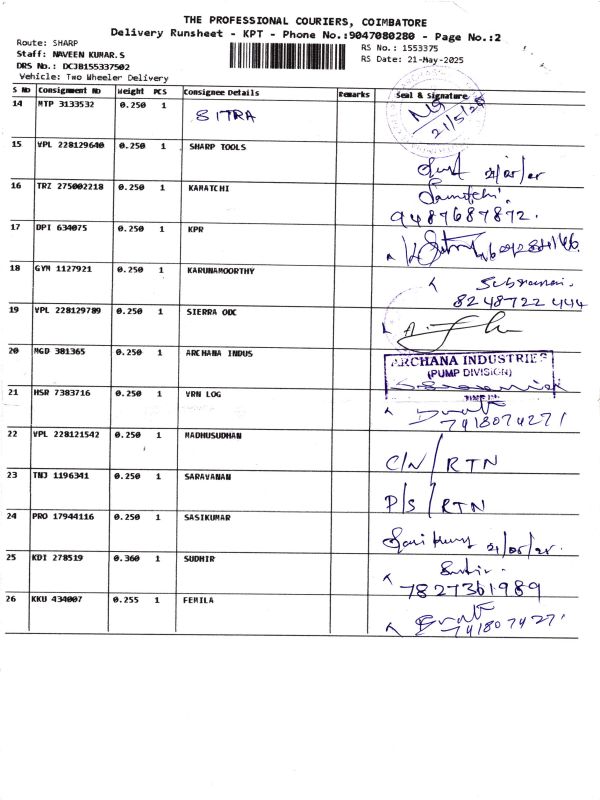 THE PROFESSIONAL COURIERS, COIMBATORE
Delivery Runsheet - KPT - Phone No.:9047080280 - Page No.:2
Route: SHARP
RS No.: 1553375
Staff: NAVEEN KUMAR.S
RS Date: 21-May-2025
DRS No.: DCJB155337502
Vehicle: Two Wheeler Delivery
S No Consignment No Weight PCS Consignee Details Remarks Seal & Signature
14 MTP 3133532 0.250 1 SITRA
21/5/25
15 VPL 228129640 0.250 1 SHARP TOOLS
16 TRZ 275002218 0.250 1 KAMATCHI
9487687872.
17 DPI 634075 0.250 1 KPR
18 GYM 1127921 0.250 1 KARUNAMOORTHY
8248722444
19 VPL 228129789 0.250 1 SIERRA ODC
20 MGD 381365 0.250 1 ARCHANA INDUS
ARCHANA INDUSTRIES
(PUMP DIVISION)
21 HSR 7383716 0.250 1 VRN LOG
7418074271
22 VPL 228121542 0.250 1 MADHUSUDHAN C/N/RTN
23 TNJ 1196341 0.250 1 SARAVANAN P/S/RTN
24 PRO 17944116 0.250 1 SASIKUMAR
25 KDI 278519 0.360 1 SUDHIR
7827361989
26 KKU 434007 0.255 1 FEMILA
7418074271